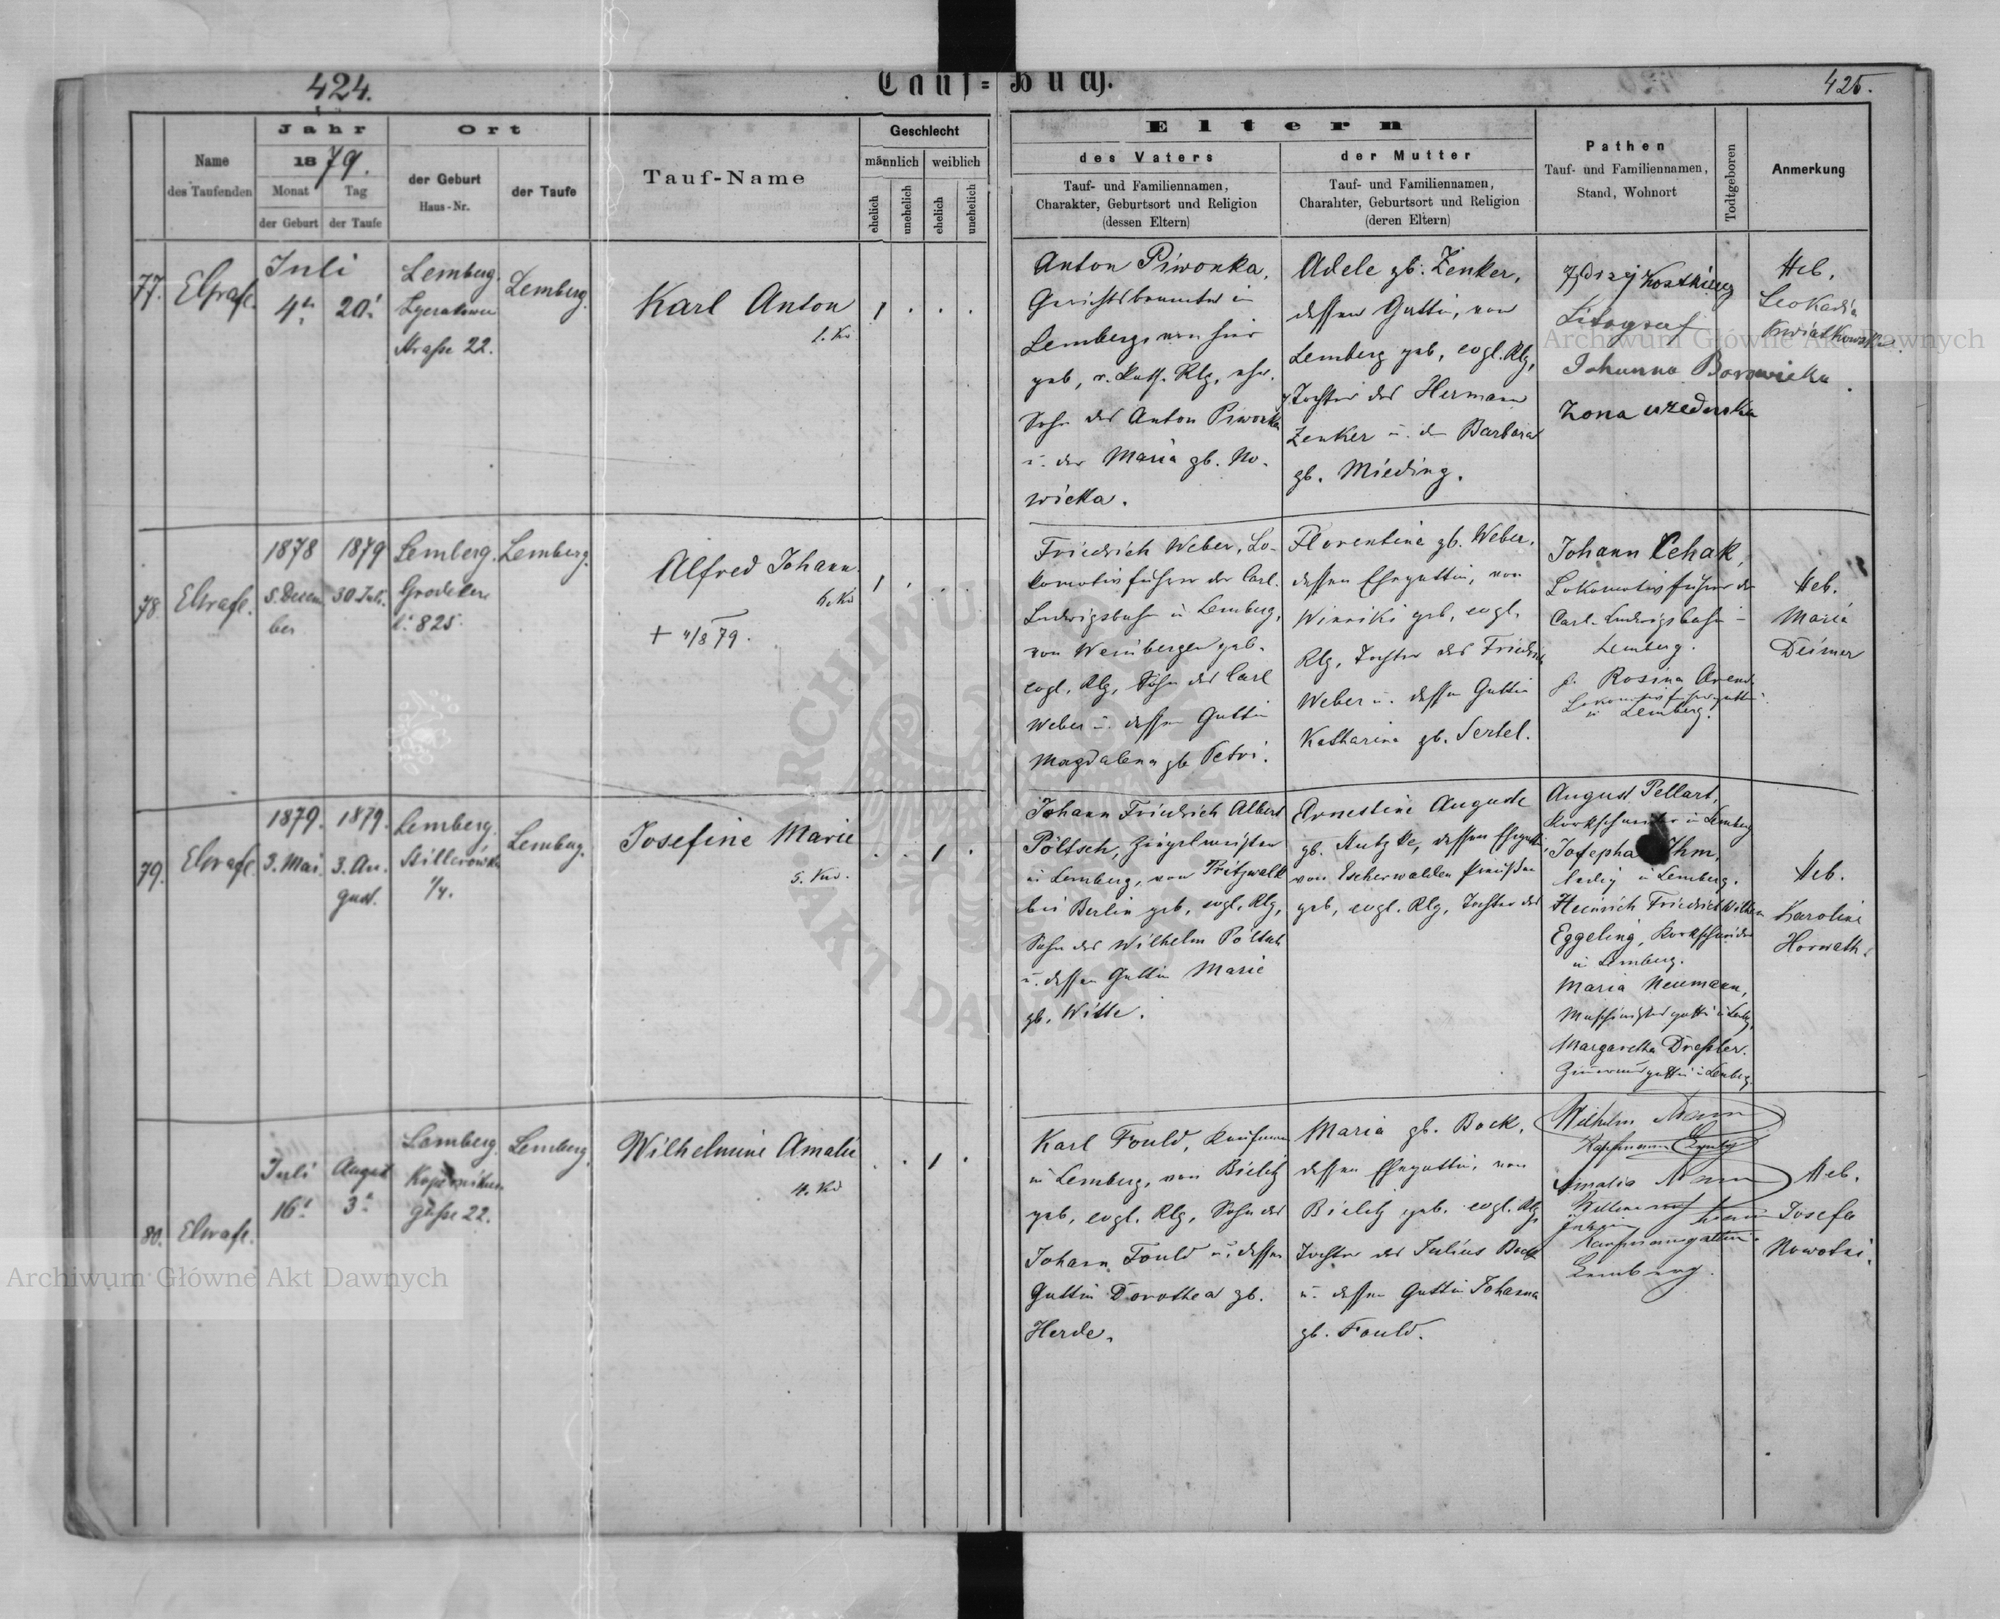 424.
Tauf=Buch.
425.
Name
des Taufenden
Jahr
1879.
Monat
Tag
der Geburt
der Taufe
Ort
der Geburt
Haus-Nr.
der Taufe
Tauf-Name
Geschlecht
männlich
weiblich
ehelich
unehelich
ehelich
unehelich
Eltern
des Vaters
Tauf- und Familiennamen,
Charakter, Geburtsort und Religion
(dessen Eltern)
der Mutter
Tauf- und Familiennamen,
Charakter, Geburtsort und Religion
(deren Eltern)
Pathen
Tauf- und Familiennamen,
Stand, Wohnort
Todtgeboren
Anmerkung
77.
Juli
4
20
Lemberg.
Straße 22.
Lemberg.
Karl Anton
Anton Piwonka,
Gerichtsbeamter in
Lemberg, von hier
geb, r. kath. Rlg, ehel.
Sohn des Anton Piwonka
u. der Maria gb. No-
wicka.
Adele gb. Zenker,
dessen Gattin, von
Lemberg geb, evgl. Rlg,
Tochter des Hermann
Zenker u. d. Barbara
gb. Mieding.
Litograf
Johanna Borowicka
Heb.
Leokadia
Kwiatkowska
78.
1878
5. Decem
ber
1879
30. Juli
Lemberg.
825.
Lemberg.
Alfred Johann
+ 4/8 79.
Friedrich Weber, Lo-
komotivführer der Carl-
Ludwigsbahn in Lemberg,
von Weinbergen geb.
evgl. Rlg, Sohn des Carl
Weber u. dessen Gattin
Magdalena gb Petri.
Florentine gb. Weber,
dessen Ehegattin, von
Winniki geb, evgl.
Rlg, Tochter des Friedrich
Weber u. dessen Gattin
Katharina gb. Sertel.
Johann Cehak,
Lokomotivführer der
Carl-Ludwigsbahn in
Lemberg.
Rosina
Lemberg.
Heb.
Maria
Deimer
79.
1879.
3. Mai
1879.
3. Au-
gust.
Lemberg.
Lemberg.
Josefine Marie
Johann Friedrich Albert
Pöltsch, Ziegelmeister
in Lemberg, von Pritzwalk
bei Berlin geb, evgl. Rlg,
Sohn des Wilhelm Pöltsch
u. dessen Gattin Marie
gb. Witte.
Ernestine Auguste
dessen Ehegattin,
geb, evgl. Rlg, Tochter des
August Pellart,
Korkschneider in Lemberg
Josepha Ihm,
ledig in Lemberg.
Heinrich Friedrich Wilhelm
Eggeling, Korkschneider
in Lemberg.
Maria Neumann,
Margaretha Dreßler.
Heb.
Karoline
Horwath.
80.
Juli
16
August
3
Lemberg.
Kopernikus
gasse 22.
Lemberg.
Wilhelmine Amalie
Karl Fould, Kaufmann
in Lemberg, von Bielitz
geb, evgl. Rlg, Sohn des
Johann Fould u. dessen
Gattin Dorothea gb.
Herde.
Maria gb. Bock,
dessen Ehegattin, von
Bielitz geb. evgl. Rlg,
Tochter des Julius Bock
u. dessen Gattin Johanna
gb. Fould.
Wilhelm
Kaufmann
Amalia
Kaufmannsgattin
Lemberg.
Heb.
Josefa
Nowotni.
Archiwum Główne Akt Dawnych
Archiwum Główne Akt Dawnych